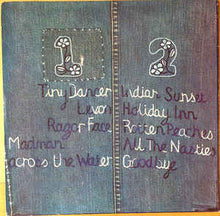 1 2
Tiny Dancer
Levon
Razor Face
Madman
across the Water
Indian Sunset
Holiday Inn
Rotten Peaches
All The Nasties
Goodbye